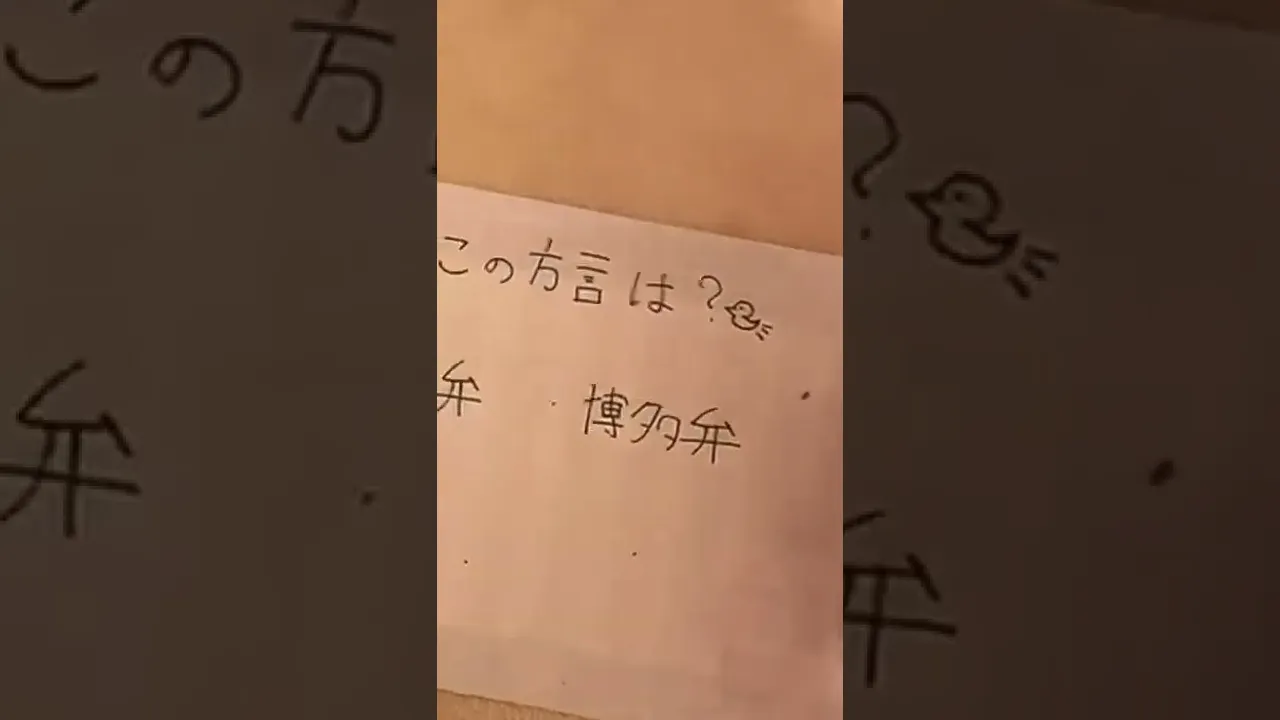 この方言は？
弁 ・博多弁